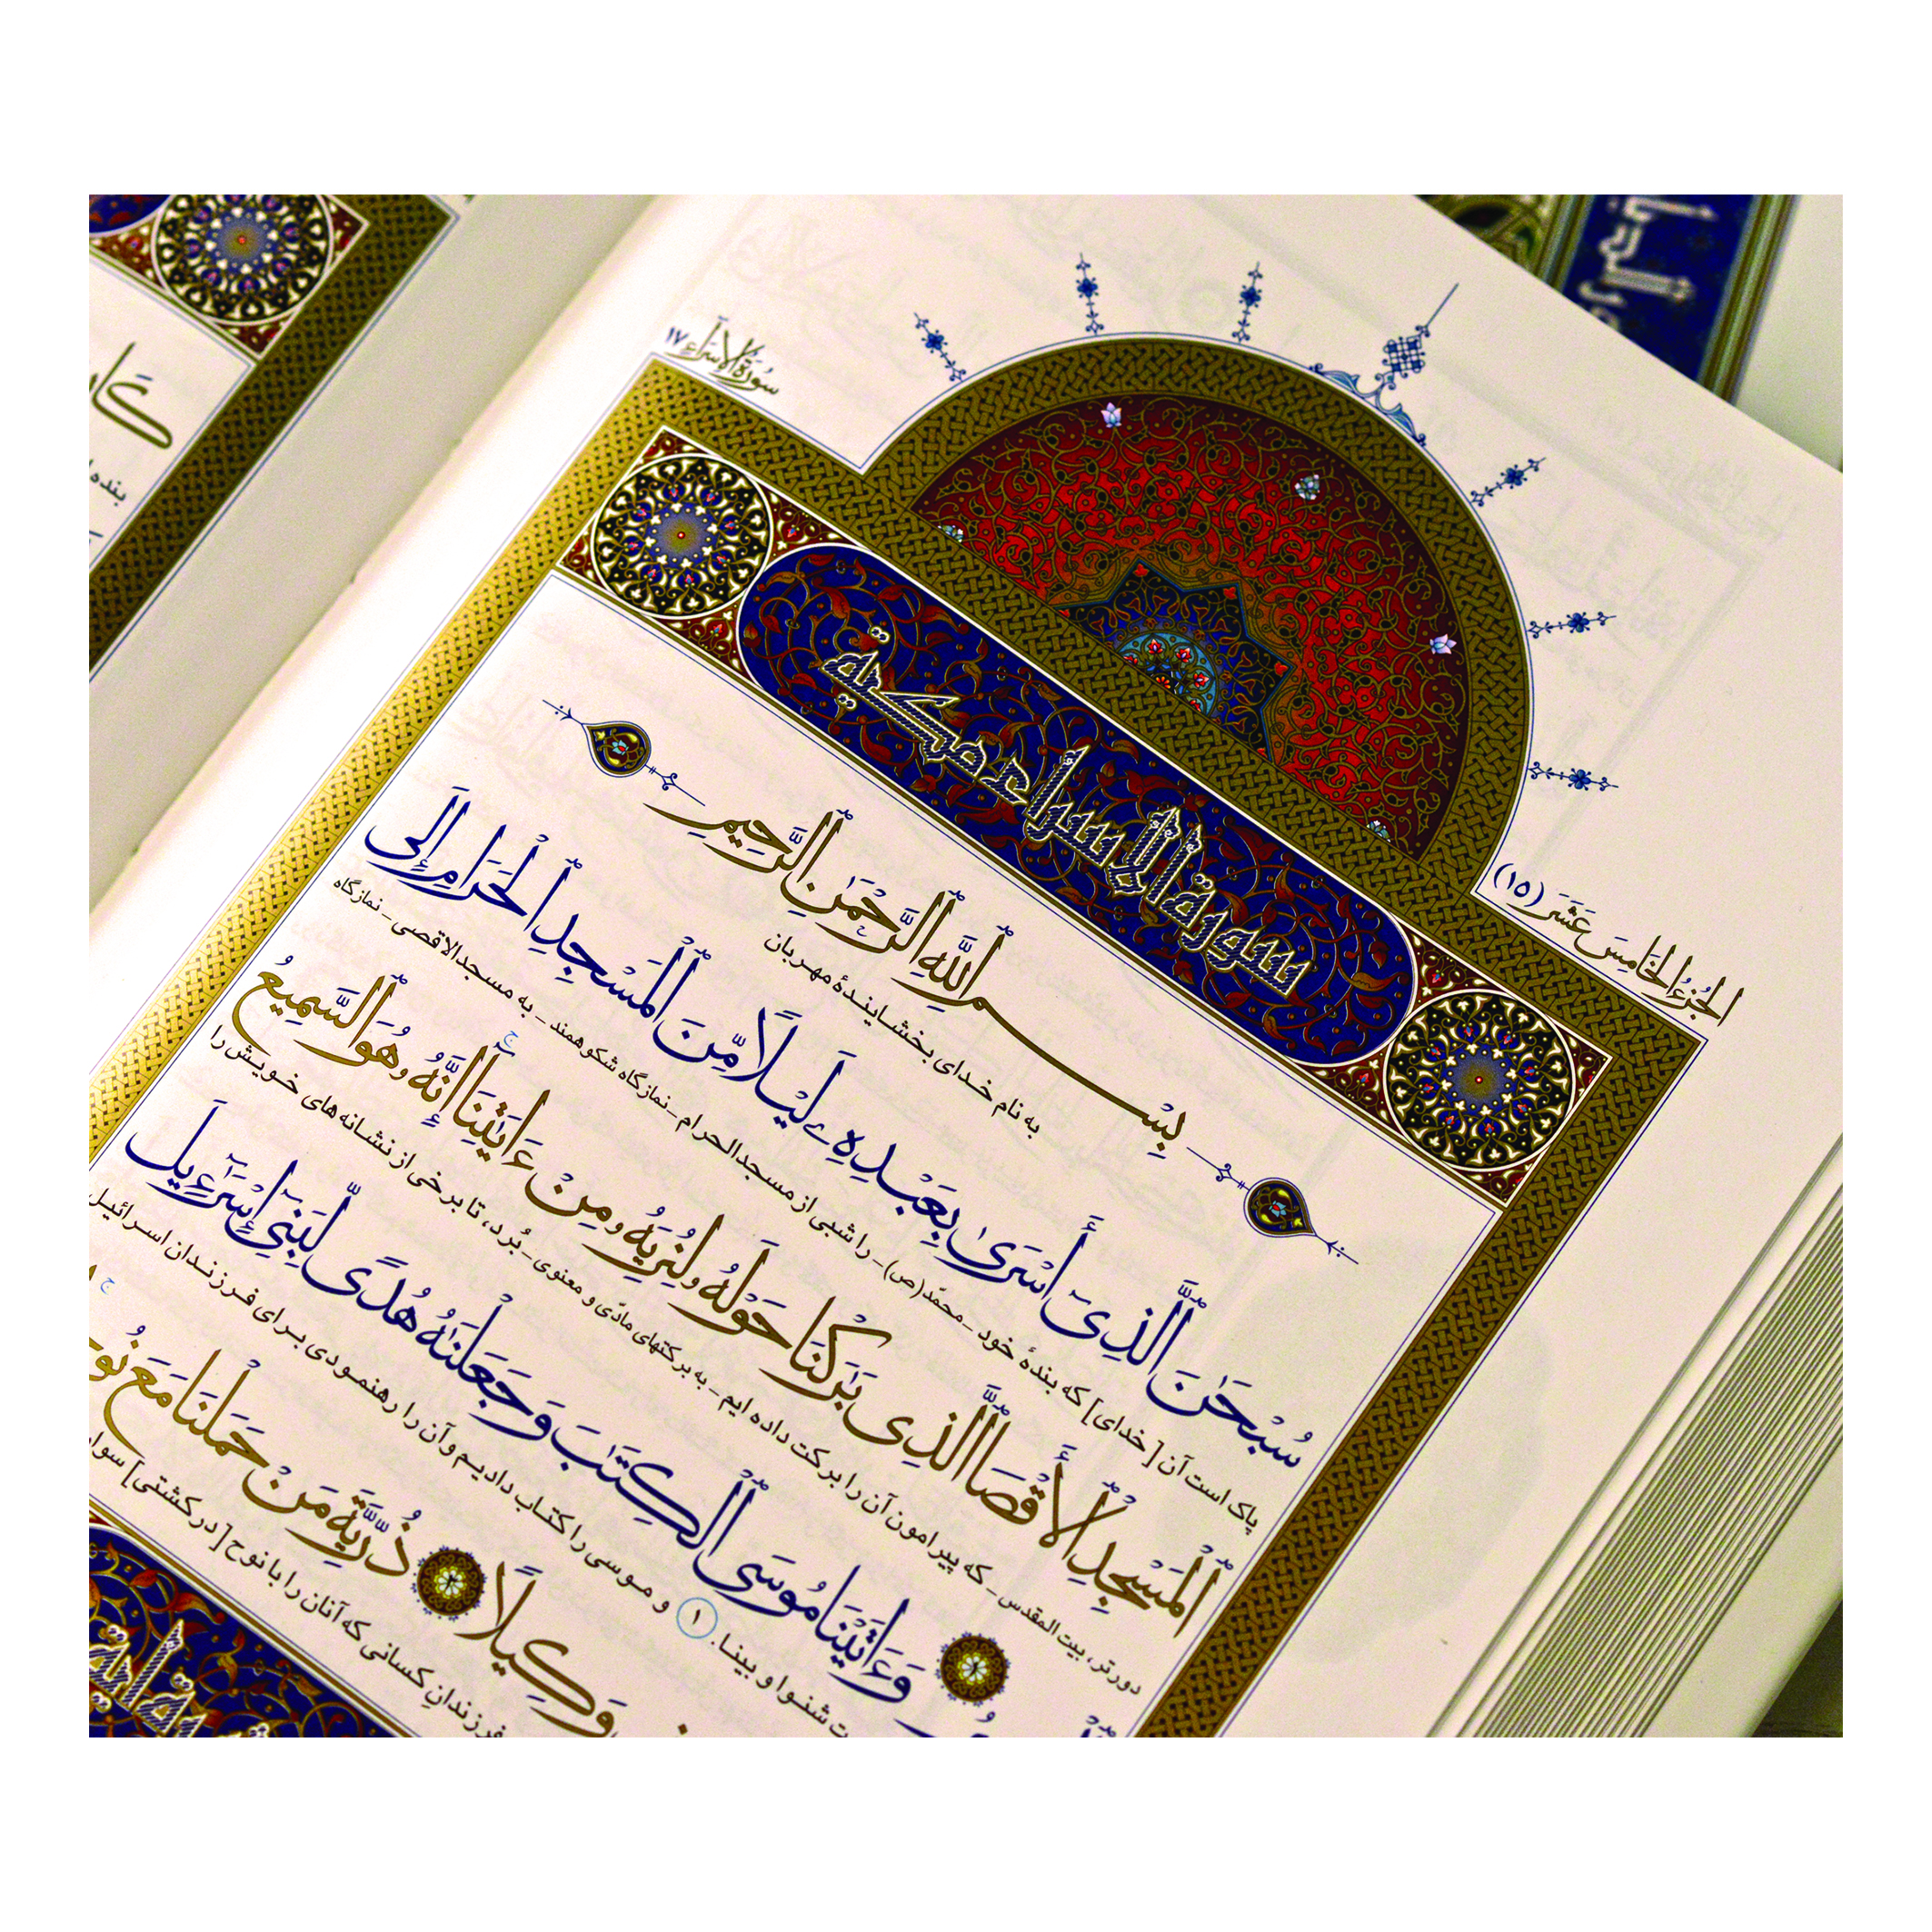 سُورَةُ الْإِسْرَاءِ ١٧
الْجُزْءُ الْخَامِسَ عَشَرَ (١٥)
سورة الاسراء مكية
بِسْمِ ٱللَّهِ ٱلرَّحْمَٰنِ ٱلرَّحِيمِ
به نام خدای بخشایندهٔ مهربان
سُبْحَٰنَ ٱلَّذِىٓ أَسْرَىٰ بِعَبْدِهِۦ لَيْلًا مِّنَ ٱلْمَسْجِدِ ٱلْحَرَامِ إِلَى
پاک است آن [خدای] که بندهٔ خود ـ محمّد(ص) ـ را شبی از مسجدالحرام ـ نمازگاه شکوهمند ـ به مسجدالاقصی ـ نمازگاه
ٱلْمَسْجِدِ ٱلْأَقْصَا ٱلَّذِى بَٰرَكْنَا حَوْلَهُۥ لِنُرِيَهُۥ مِنْ ءَايَٰتِنَآ ۚ إِنَّهُۥ هُوَ ٱلسَّمِيعُ
دورتر، بیت المقدس ـ که پیرامون آن را برکت داده ایم ـ به برکتهای مادّی و معنوی ـ بُرد، تا برخی از نشانه های خویش را
وَءَاتَيْنَا مُوسَى ٱلْكِتَٰبَ وَجَعَلْنَٰهُ هُدًى لِّبَنِىٓ إِسْرَٰٓءِيلَ
ت شنوا و بینا. ١ و موسی را کتاب دادیم و آن را رهنمودی برای فرزندان اسرائیل
وَكِيلًا ٢ ذُرِّيَّةَ مَنْ حَمَلْنَا مَعَ نُو
فرزندانِ کسانی که آنان را با نوح [در کشتی] سوار
بنده